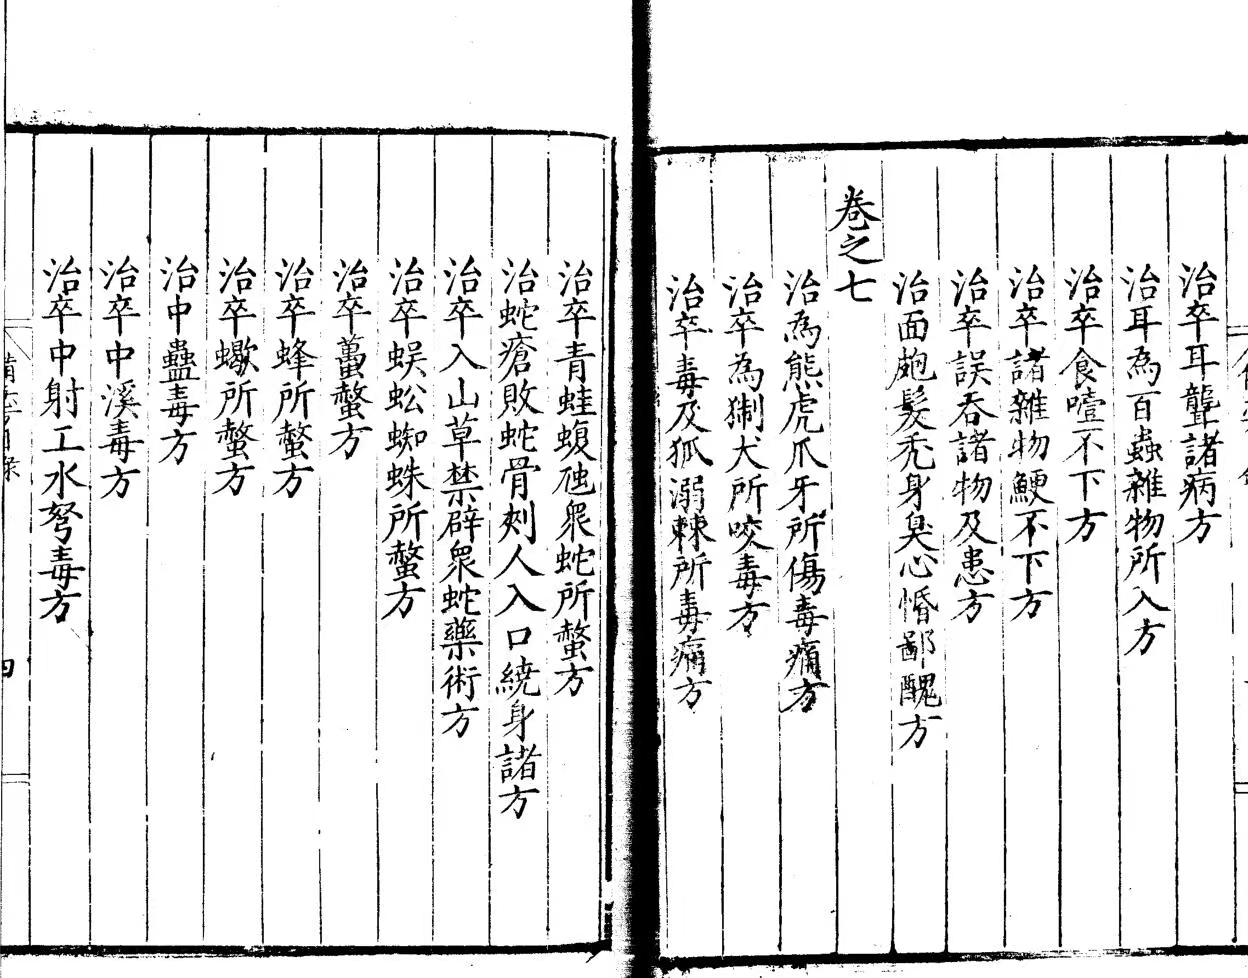 治卒耳聾諸病方
治耳為百蟲雜物所入方
治卒食噎不下方
治卒諸雜物鯁不下方
治卒誤吞諸物及患方
治面皰髮禿身臭心惛鄙醜方
卷之七
治為熊虎爪牙所傷毒痛方
治卒為猘犬所咬毒方
治卒毒及狐溺棘所毒痛方
治卒青蛙蝮虺眾蛇所螫方
治蛇瘡敗蛇骨刺人入口繞身諸方
治卒入山草禁辟眾蛇藥術方
治卒蜈蚣蜘蛛所螫方
治卒蠆螫方
治卒蜂所螫方
治卒蠍所螫方
治中蠱毒方
治卒中溪毒方
治卒中射工水弩毒方
四